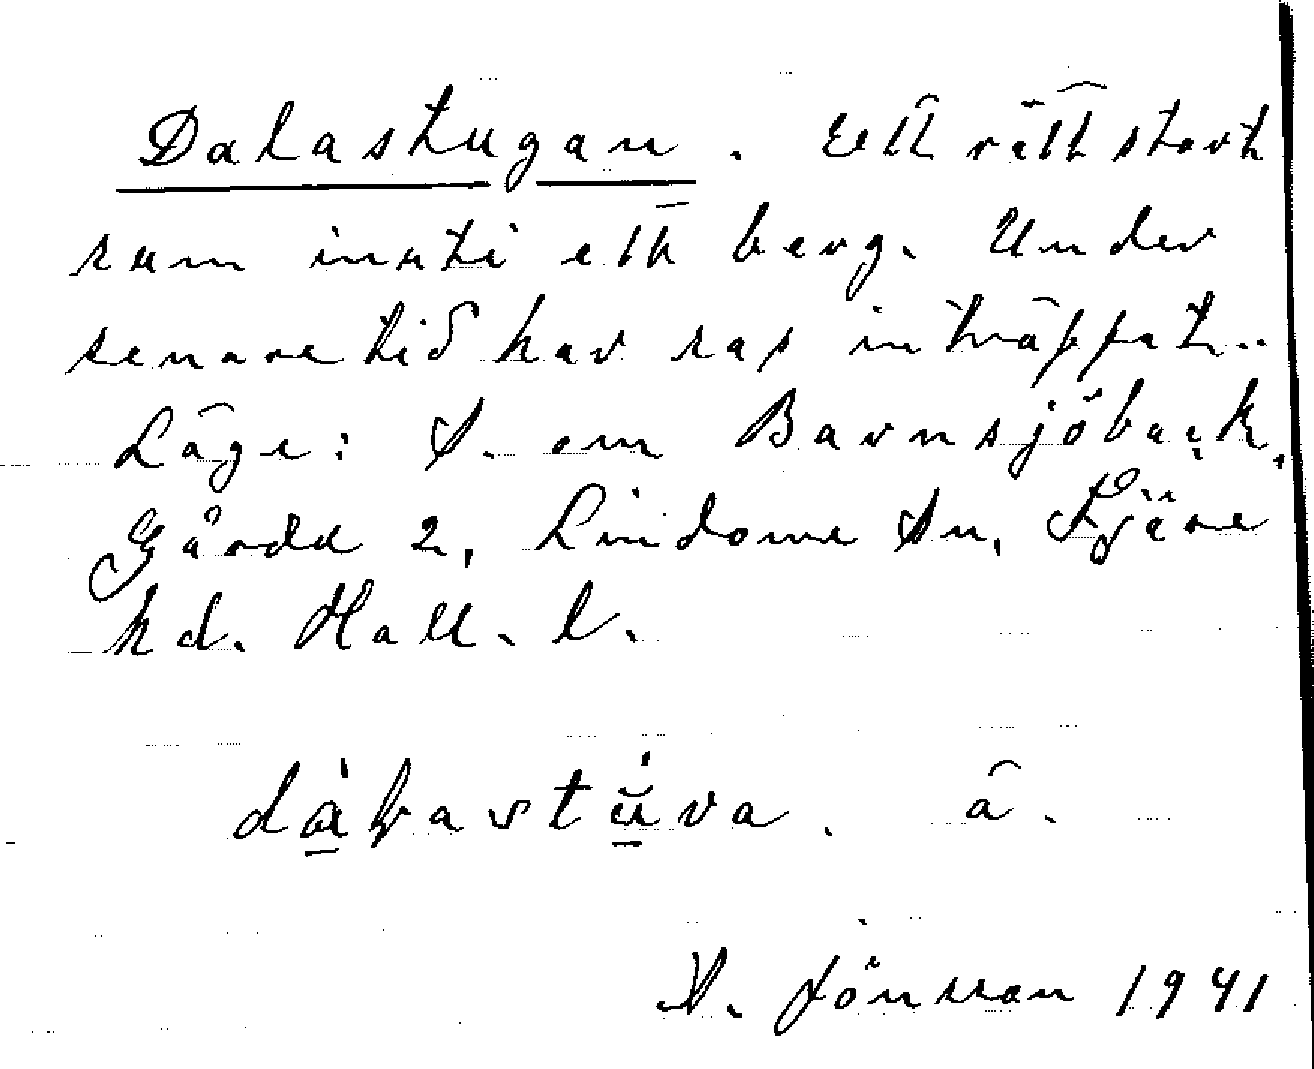 Dalastugan. Ett rätt stort
rum inuti ett berg. Under
senare tid har ras inträffat.
Läge: S. om Barnsjöbäck,
Gårda 2, Lindome sn, Fjäre
hd. Hall. l.
dàłastúva. â.
A. Jönsson 1941